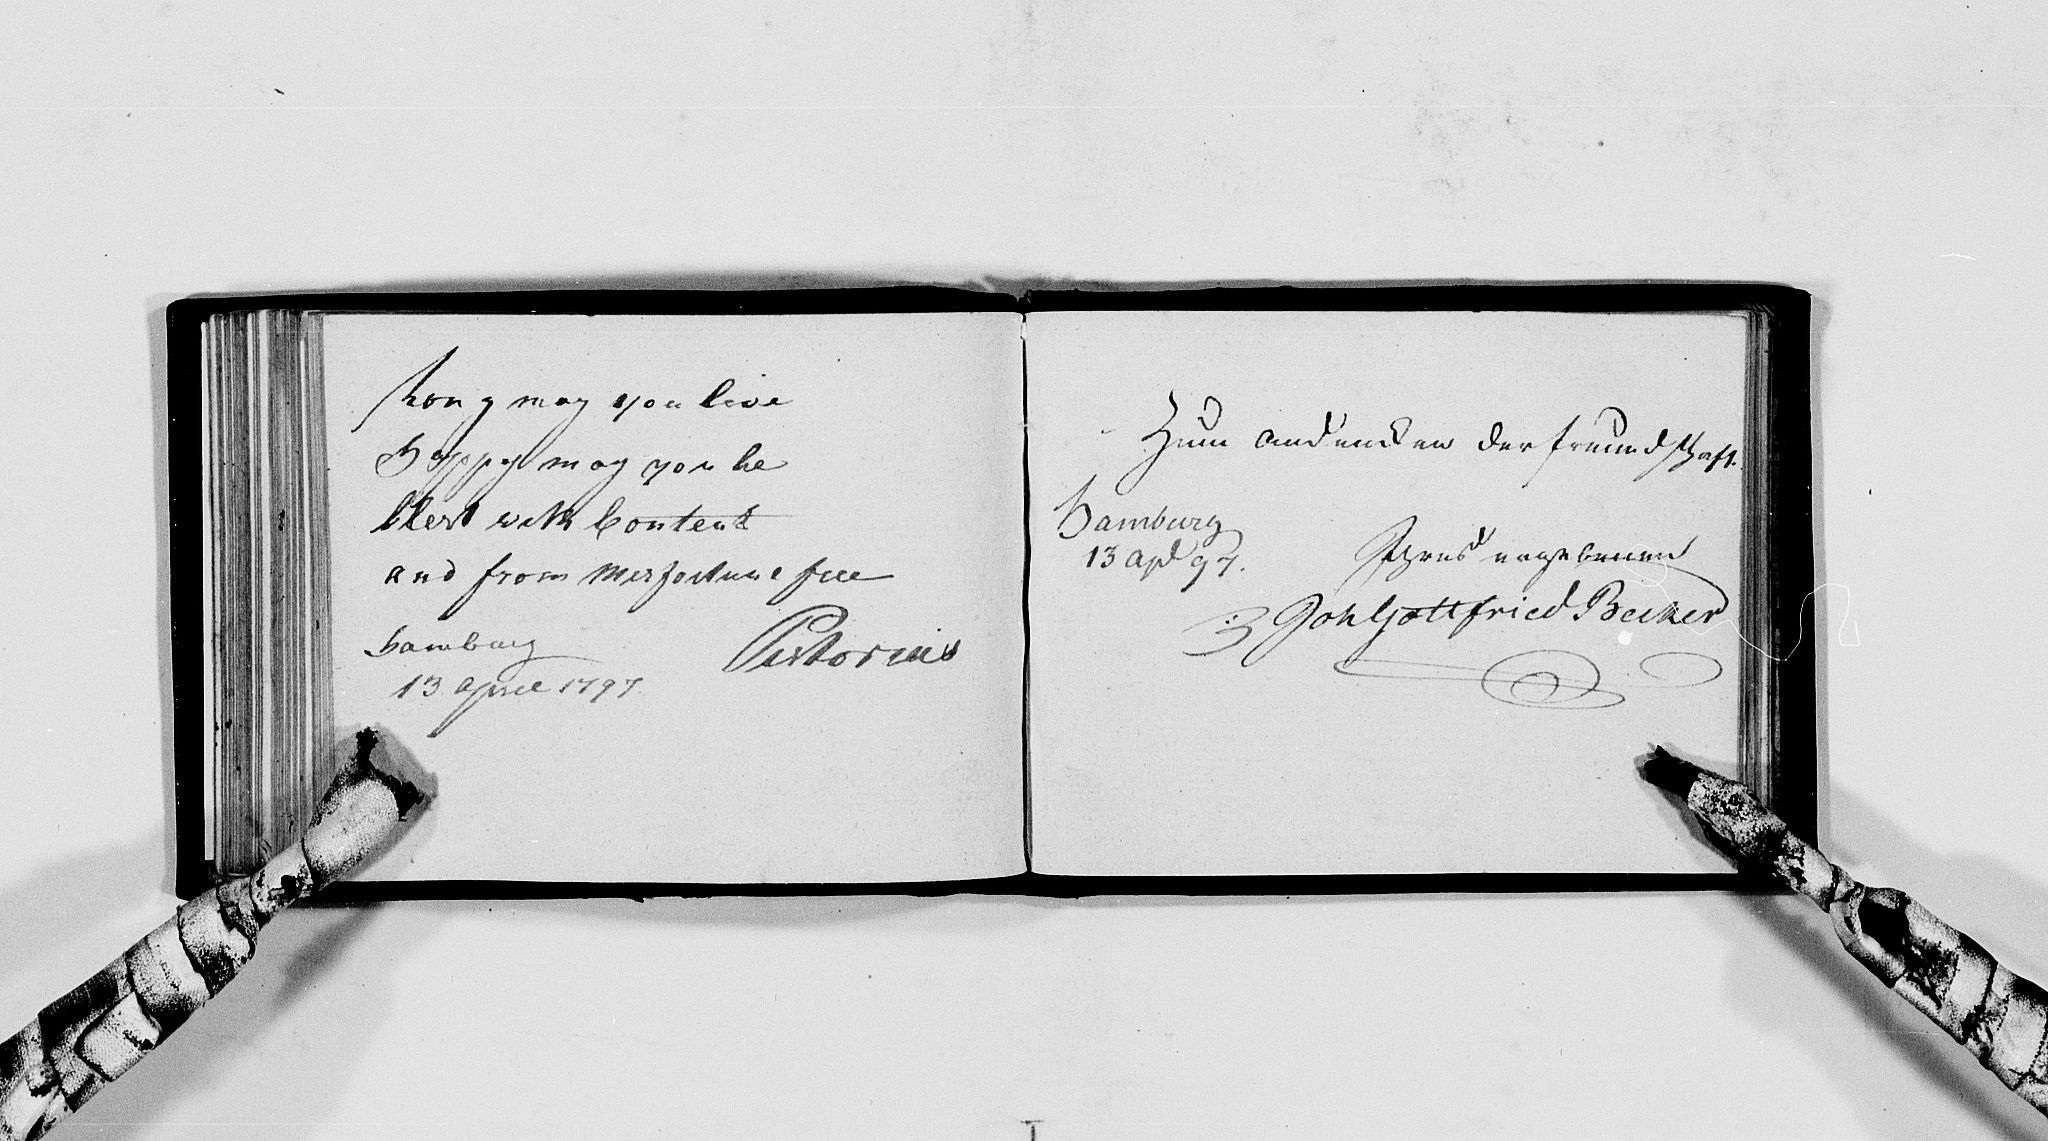 Long may you live
Happy may you be
blest with Content
and from Misfortune free
Hamburg
13 April 1797
Pistorius
Zum andencken der freundschaft.
Hamburg
13 Apl 97.
Ihres ergebenen
Joh Gottfried Becker